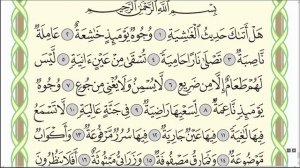 بِسْمِ ٱللَّهِ ٱلرَّحْمَٰنِ ٱلرَّحِيمِ
هَلْ أَتَىٰكَ حَدِيثُ ٱلْغَٰشِيَةِ ١ وُجُوهٌ يَوْمَئِذٍ خَٰشِعَةٌ ٢ عَامِلَةٌ
نَّاصِبَةٌ ٣ تَصْلَىٰ نَارًا حَامِيَةً ٤ تُسْقَىٰ مِنْ عَيْنٍ ءَانِيَةٍ ٥ لَّيْسَ
لَهُمْ طَعَامٌ إِلَّا مِن ضَرِيعٍ ٦ لَّا يُسْمِنُ وَلَا يُغْنِى مِن جُوعٍ ٧ وُجُوهٌ
يَوْمَئِذٍ نَّاعِمَةٌ ٨ لِّسَعْيِهَا رَاضِيَةٌ ٩ فِى جَنَّةٍ عَالِيَةٍ ١٠ لَّا تَسْمَعُ
فِيهَا لَٰغِيَةً ١١ فِيهَا عَيْنٌ جَارِيَةٌ ١٢ فِيهَا سُرُرٌ مَّرْفُوعَةٌ ١٣ وَأَكْوَابٌ
مَّوْضُوعَةٌ ١٤ وَنَمَارِقُ مَصْفُوفَةٌ ١٥ وَزَرَابِىُّ مَبْثُوثَةٌ ١٦ أَفَلَا يَنظُرُونَ